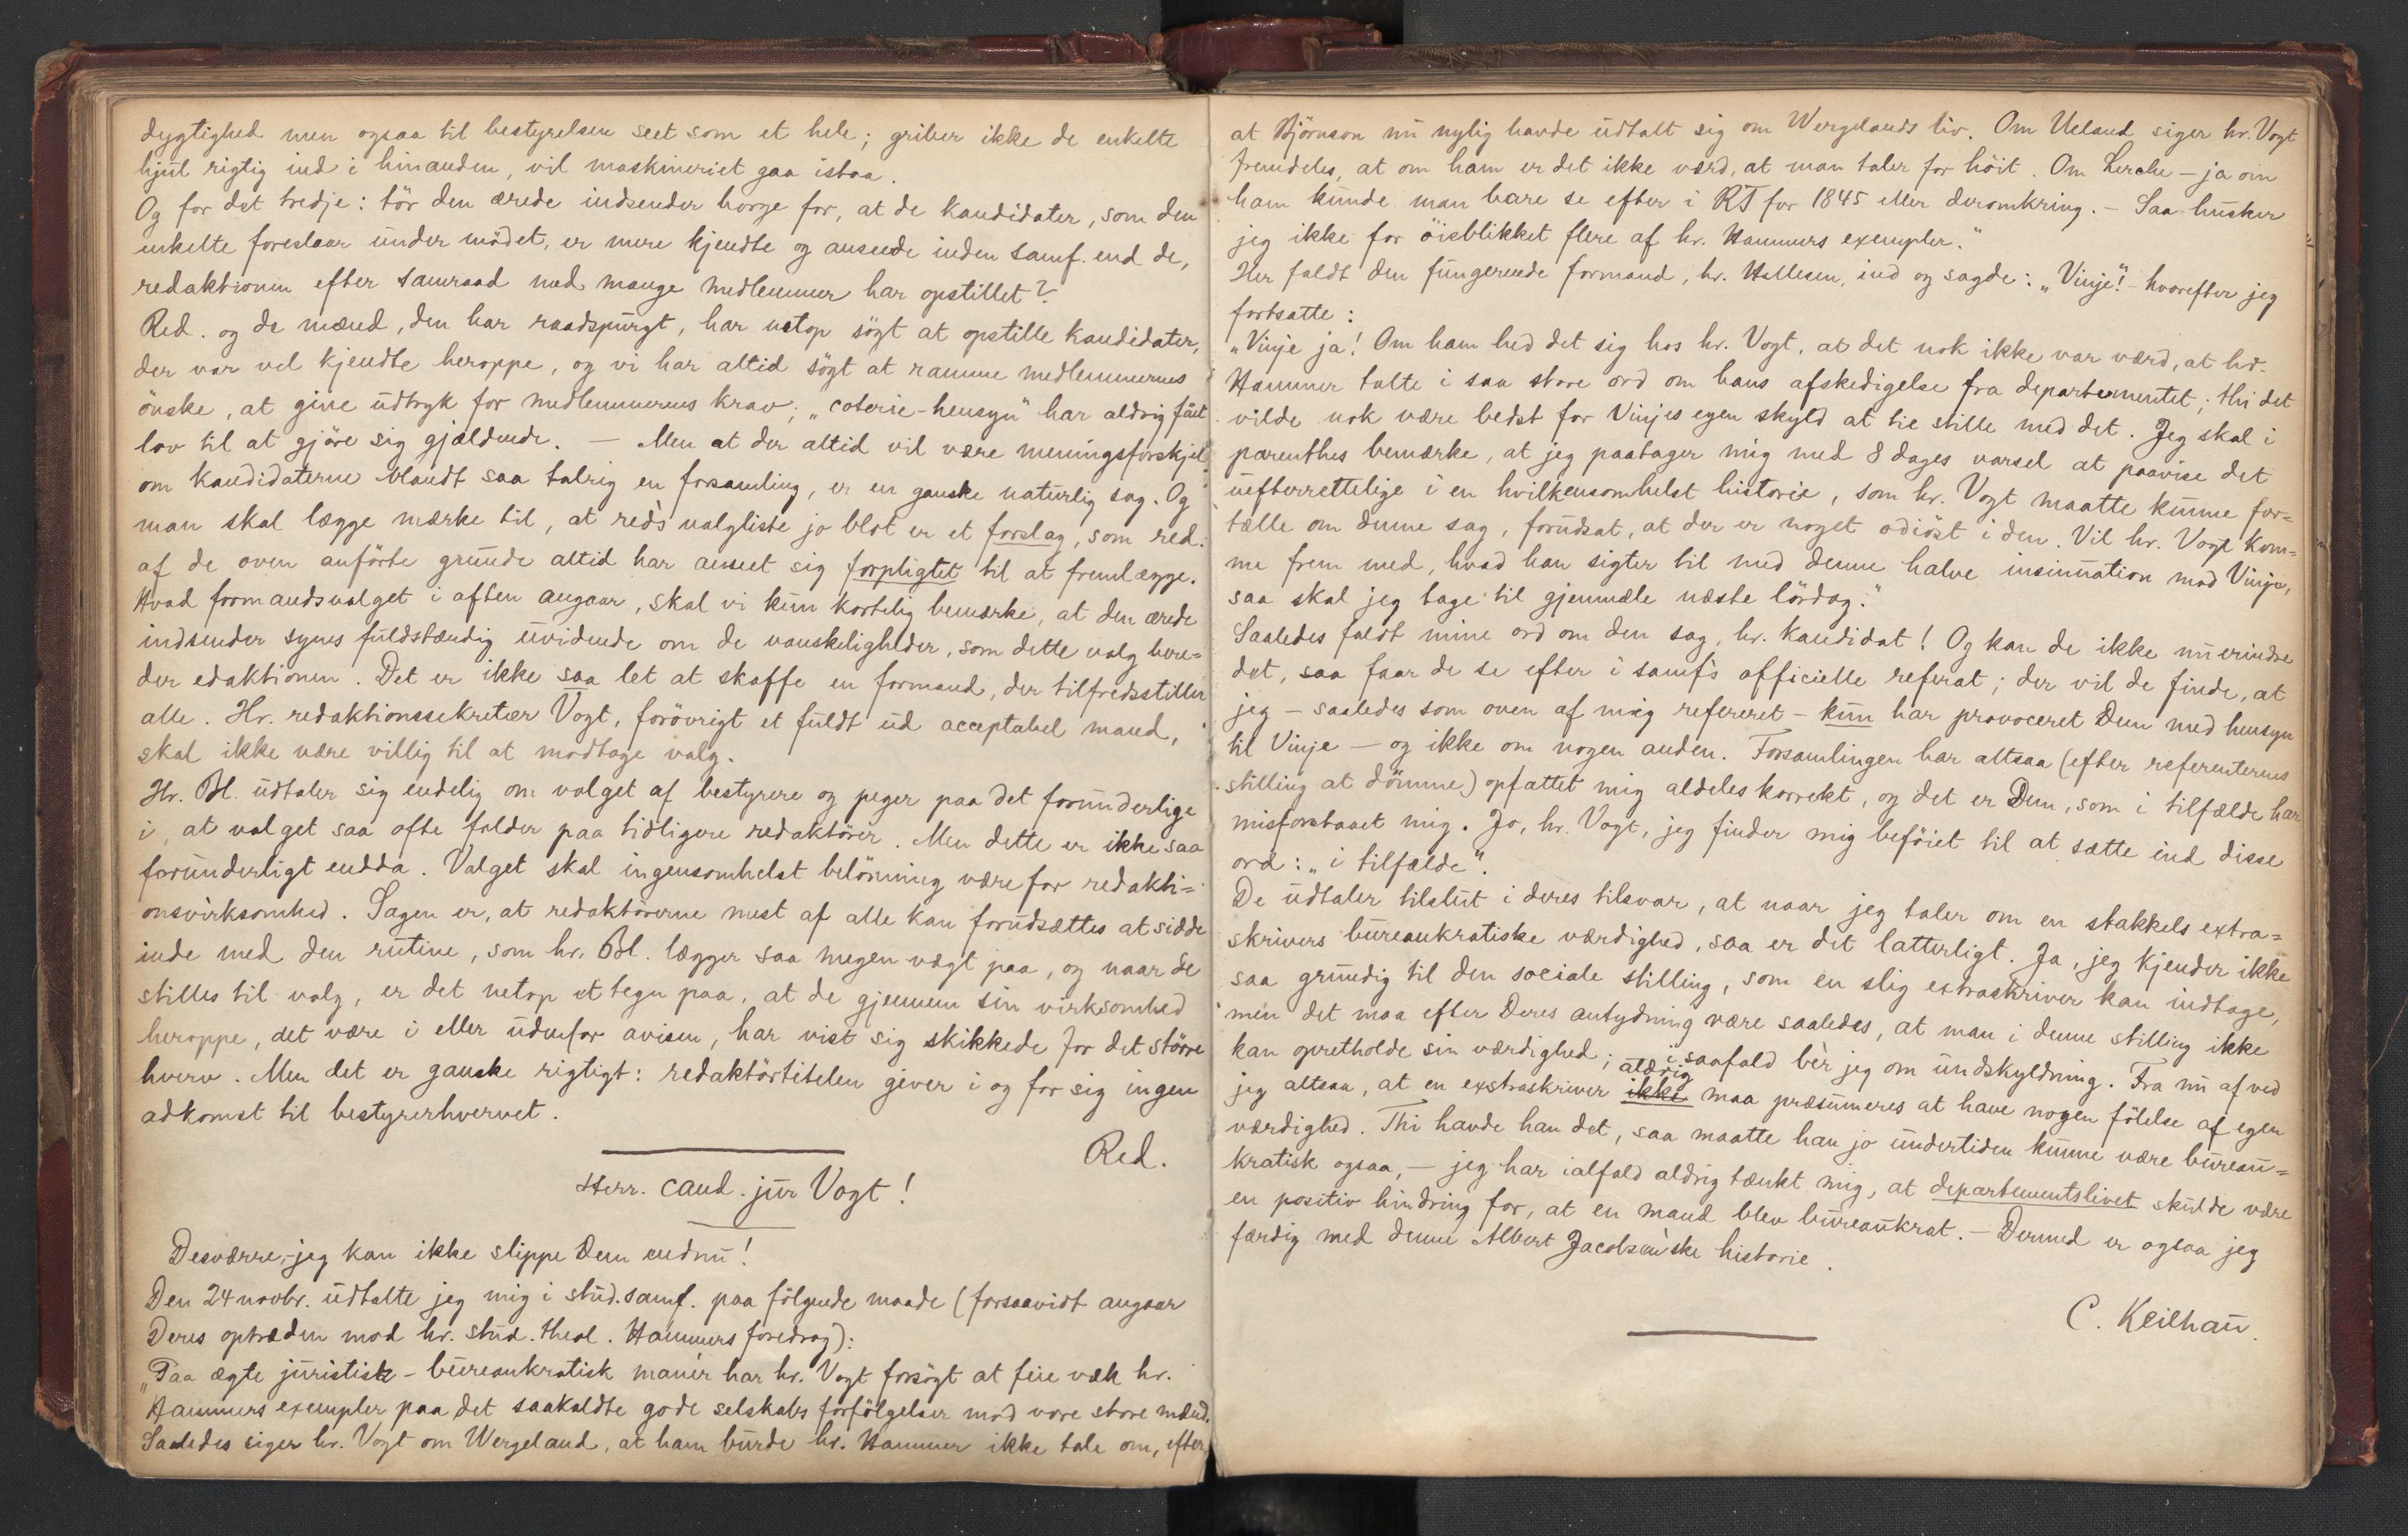 dygtighed men ogsaa til bestyrelsen seet som et hele; griber ikke de enkelte
hjul rigtig ind i hinanden, vil maskineriet gaa istaa.
Og for det tredje: tör den ærede indsender borge for, at de kandidater, som den
enkelte foreslaar under mödet, er mere kjendte og ansede inden samf. end de,
redaktionen efter samraad med mange medlemmer har opstillet?
Red. og de mænd, den har raadspurgt, har netop sögt at opstille kandidater,
der var vel kjendte heroppe, og vi har altid sögt at ramme medlemmernes
önske, at give udtryk for medlemmernes krav; „coterie-hensyn" har aldrig fået
lov til at gjöre sig gjældende. — Men at der altid vil være meningsforskjel
om kandidaterne blandt saa talrig en forsamling, er en ganske naturlig sag. Og
man skal lægge mærke til, at red's valgliste jo blot er et forslag, som red.
af de oven anförte grunde altid har anseet sig forpligtet til at fremlægge.
Hvad formandsvalget i aften angaar, skal vi kun kortelig bemærke, at den ærede
indsender synes fuldstændig uvidende om de vanskeligheder, som dette valg bere-
der edaktionen. Det er ikke saa let at skaffe en formand, der tilfredsstiller
alle. Hr. redaktionssekretær Vogt, forövrigt et fuldt ud acceptabel mand,
skal ikke være villig til at modtage valg.
Hr. Bl. udtaler sig endelig om valget af bestyrere og peger paa det forunderlige
i, at valget saa ofte falder paa tidligere redaktörer. Men dette er ikke saa
forunderligt endda. Valget skal ingensomhelst belönning være for redakti=
onsvirksomhed. Sagen er, at redaktörerne mest af alle kan forudsættes at sidde
inde med den rutine, som hr. Bl. lægger saa megen vægt paa, og naar de
stilles til valg, er det netop et tegn paa, at de gjennem sin virksomhed
heroppe, det være i eller udenfor avisen, har vist sig skikkede for det större
hverv. Men det er ganske rigtigt: redaktörtitelen giver i og for sig ingen
adkomst til bestyrerhvervet.
Red.
Herr. cand. jur Vogt!
Desværre, jeg kan ikke slippe Dem endnu!
Den 24 novbr. udtalte jeg mig i stud. samf. paa fölgende maade (forsaavidt angaar
Deres optræden mod hr. stud. theol. Hammers foredrag):
„Paa ægte juristisk-bureaukratisk manér har hr. Vogt forsögt at feie væk hr.
Hammers exempler paa det saakaldte gode selskabs forfölgelser mod vore store mænd.
Saaledes siger hr. Vogt om Wergeland, at ham burde hr. Hammer ikke tale om, efter
at Björnson nu nylig havde udtalt sig om Wergelands liv. Om Ueland siger hr. Vogt
fremdeles, at om ham er det ikke værd, at man taler for höit. Om Lerche — ja om
ham kunde man bare se efter i RT for 1845 eller deromkring. — Saa husker
jeg ikke for öieblikket flere af hr. Hammers exempler."
Her faldt den fungerende formand, hr. Hallesen, ind og sagde: „Vinje!" - hvorefter jeg
fortsatte:
„Vinje ja! Om ham hed det sig hos hr. Vogt, at det nok ikke var værd, at hr.
Hammer talte i saa store ord om hans afskedigelse fra departementet; thi det
vilde nok være bedst for Vinjes egen skyld at tie stille med det. Jeg skal i
parenthes bemærke, at jeg paatager mig med 8 dages varsel at paavise det
uefterrettelige i en hvilkensomhelst historie, som hr. Vogt maatte kunne for=
tælle om denne sag, forudsat, at der er noget odiöst i den. Vil hr. Vogt kom=
me frem med, hvad han sigter til med denne halve insinuation mod Vinje,
saa skal jeg tage til gjenmæle næste lördag."
Saaledes faldt mine ord om den sag, hr. kandidat! Og kan de ikke nu erindre
det, saa faar de se efter i samf's officielle referat; der vil de finde, at
jeg — saaledes som oven af mig refereret — kun har provoceret Dem med hensyn
til Vinje — og ikke om nogen anden. Forsamlingen har altsaa (efter referenternes
stilling at dömme) opfattet mig aldeles korrekt, og det er Dem, som i tilfælde har
misforstaaet mig. Jo, hr. Vogt, jeg finder mig beföiet til at sætte ind disse
ord: „i tilfælde".
De udtaler tilslut i deres tilsvar, at naar jeg taler om en stakkels extra=
skrivers bureaukratiske værdighed, saa er det latterligt. Ja, jeg kjender ikke
saa grundig til den sociale stilling, som en slig extraskriver kan indtage,
men det maa efter Deres antydning være saaledes, at man i denne stilling ikke
kan opretholde sin værdighed; i saafald bèr jeg om undskyldning. Fra nu af ved
jeg altsaa, at en exstraskriver ikke aldrig maa præsumeres at have nogen fölelse af egen
værdighed. Thi havde han det, saa maatte han jo undertiden kunne være bureau=
kratisk ogsaa, — jeg har ialfald aldrig tænkt mig, at departementslivet skulde være
en positiv hindring for, at en mand blev bureaukrat. — Dermed er ogsaa jeg
færdig med denne Albert Jacobsen'ske historie.
C. Keilhau.